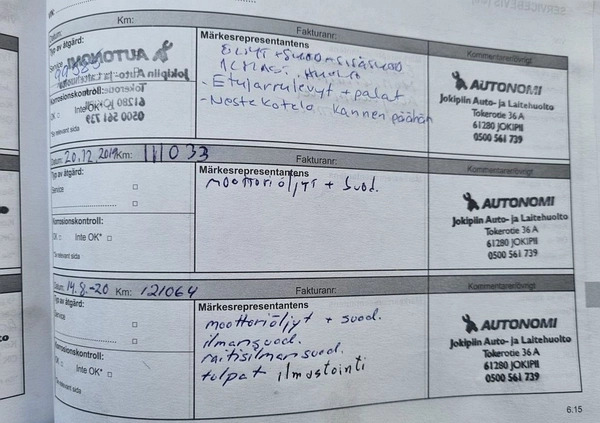 Km:
Fakturanr:
Typ av åtgärd:
Märkesrepresentantens
Kommentarer/övrigt
Service
1 ilmas. huolto
- Etujarrulevyt + palat
- Nestekotelo kannen päähän
Korrosionskontroll:
OK □ Inte OK* □
*Se relevant sida
AUTONOMI
Jokipiin Auto- ja Laitehuolto
Tokerotie 36 A
61280 JOKIPII
0500 561 739
Datum: 20.12.2019 Km: 111 033
Fakturanr:
Typ av åtgärd:
Märkesrepresentantens
Kommentarer/övrigt
Service □
□
moottoriöljyt + Suod.
Korrosionskontroll:
OK □ Inte OK* □
*Se relevant sida
AUTONOMI
Jokipiin Auto- ja Laitehuolto
Tokerotie 36 A
61280 JOKIPII
0500 561 739
Datum: 14.8.-20 Km: 121064
Fakturanr:
Typ av åtgärd:
Märkesrepresentantens
Kommentarer/övrigt
Service □
□
moottoriöljyt + suod.
ilmansuod.
raitisilmansuod.
tulpat ilmastointi
Korrosionskontroll:
OK □ Inte OK* □
*Se relevant sida
AUTONOMI
Jokipiin Auto- ja Laitehuolto
Tokerotie 36 A
61280 JOKIPII
0500 561 739
6.15